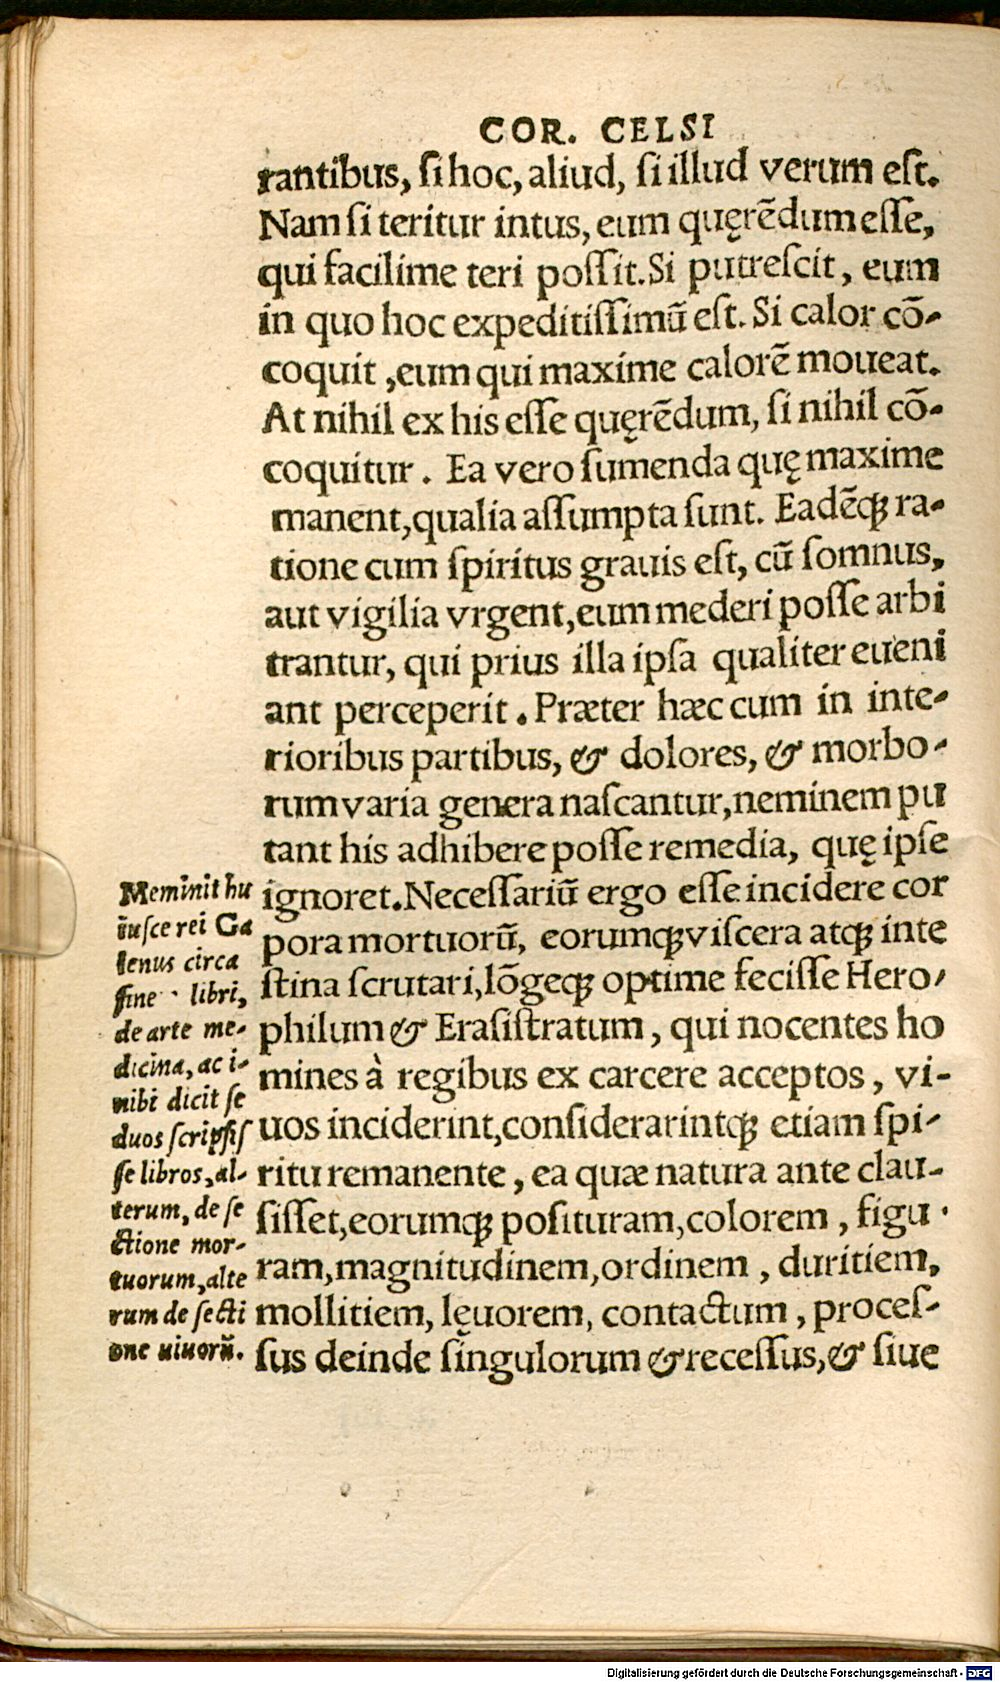 COR. CELSI
rantibus, si hoc, aliud, si illud verum est.
Nam si teritur intus, eum quęrẽdum esse,
qui facilime teri possit. Si putrescit, eum
in quo hoc expeditissimũ est. Si calor cõ-
coquit, eum qui maxime calorẽ moueat.
At nihil ex his esse quęrẽdum, si nihil cõ-
coquitur. Ea vero sumenda quę maxime
manent, qualia assumpta sunt. Eadẽq; ra-
tione cum spiritus grauis est, cũ somnus,
aut vigilia vrgent, eum mederi posse arbi
trantur, qui prius illa ipsa qualiter eueni
ant perceperit. Præter hæc cum in inte-
rioribus partibus, & dolores, & morbo-
rum varia genera nascantur, neminem pu
tant his adhibere posse remedia, quę ipse
ignoret. Necessariũ ergo esse incidere cor
pora mortuorũ, eorumq; viscera atq; inte
stina scrutari, lõgeq; optime fecisse Hero-
philum & Erasistratum, qui nocentes ho
mines à regibus ex carcere acceptos, vi-
uos inciderint, considerarintq; etiam spi-
ritu remanente, ea quæ natura ante clau-
sisset, eorumq; posituram, colorem, figu-
ram, magnitudinem, ordinem, duritiem,
mollitiem, lęuorem, contactum, proces-
sus deinde singulorum & recessus, & siue
Meminit hu
iusce rei Ga
lenus circa
fine libri,
de arte me-
dicina, ac i-
nibi dicit se
duos scripsis
se libros, al-
terum, de se
ctione mor-
tuorum, alte
rum de secti
one uiuorũ.
Digitalisierung gefördert durch die Deutsche Forschungsgemeinschaft - DFG